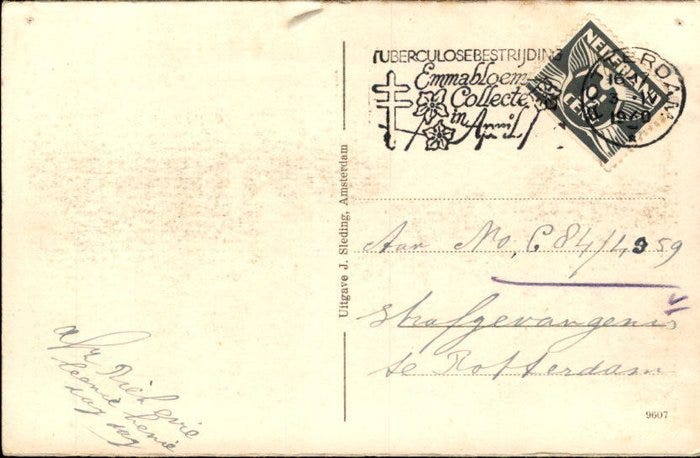 TUBERCULOSEBESTRIJDING
Emmabloem
Collecte
in April
NEDERLAND
ROTTERDAM
16
3
1940
Uitgave J. Sleding, Amsterdam
Aan No, C 84/4059
Strafgevangenis
te Rotterdam
afz
dag dag
9607